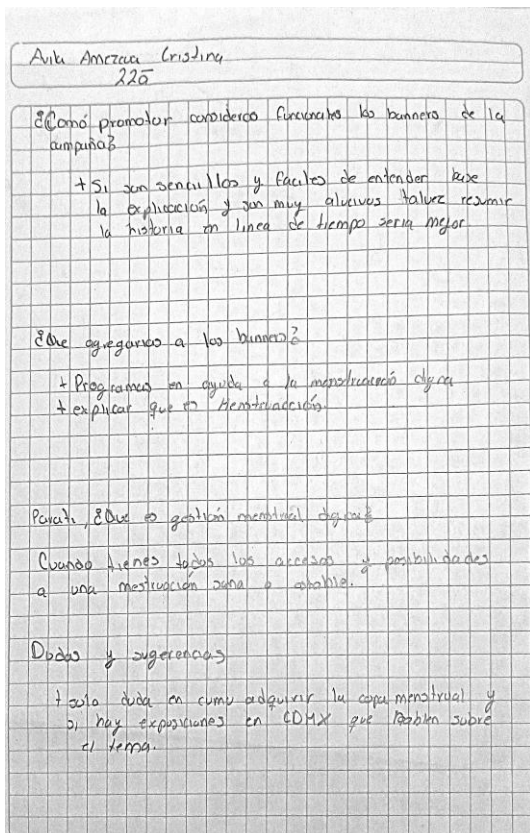 Avila Amezcua Cristina
225
¿Comó promotor considerco funcionales los banners de la
campaña?
+ Si son sencillos y faciles de entender base
la explicación y son muy alucivos talvez resumir
la historia en linea de tiempo seria mejor
¿Que agregarias a los banners?
+ Programas en ayuda a la menstruació digna
+ explicar que es Menstruacción.
Para ti, ¿Que es gestión menstrual digna?
Cuando tienes todos los accesos y posibilidades
a una mestruación sana o estable.
Dudas y sugerencias
+ sola duda en cumu adquirir la copa menstrual y
si hay exposiciones en CDMX que hablen sobre
el tema.